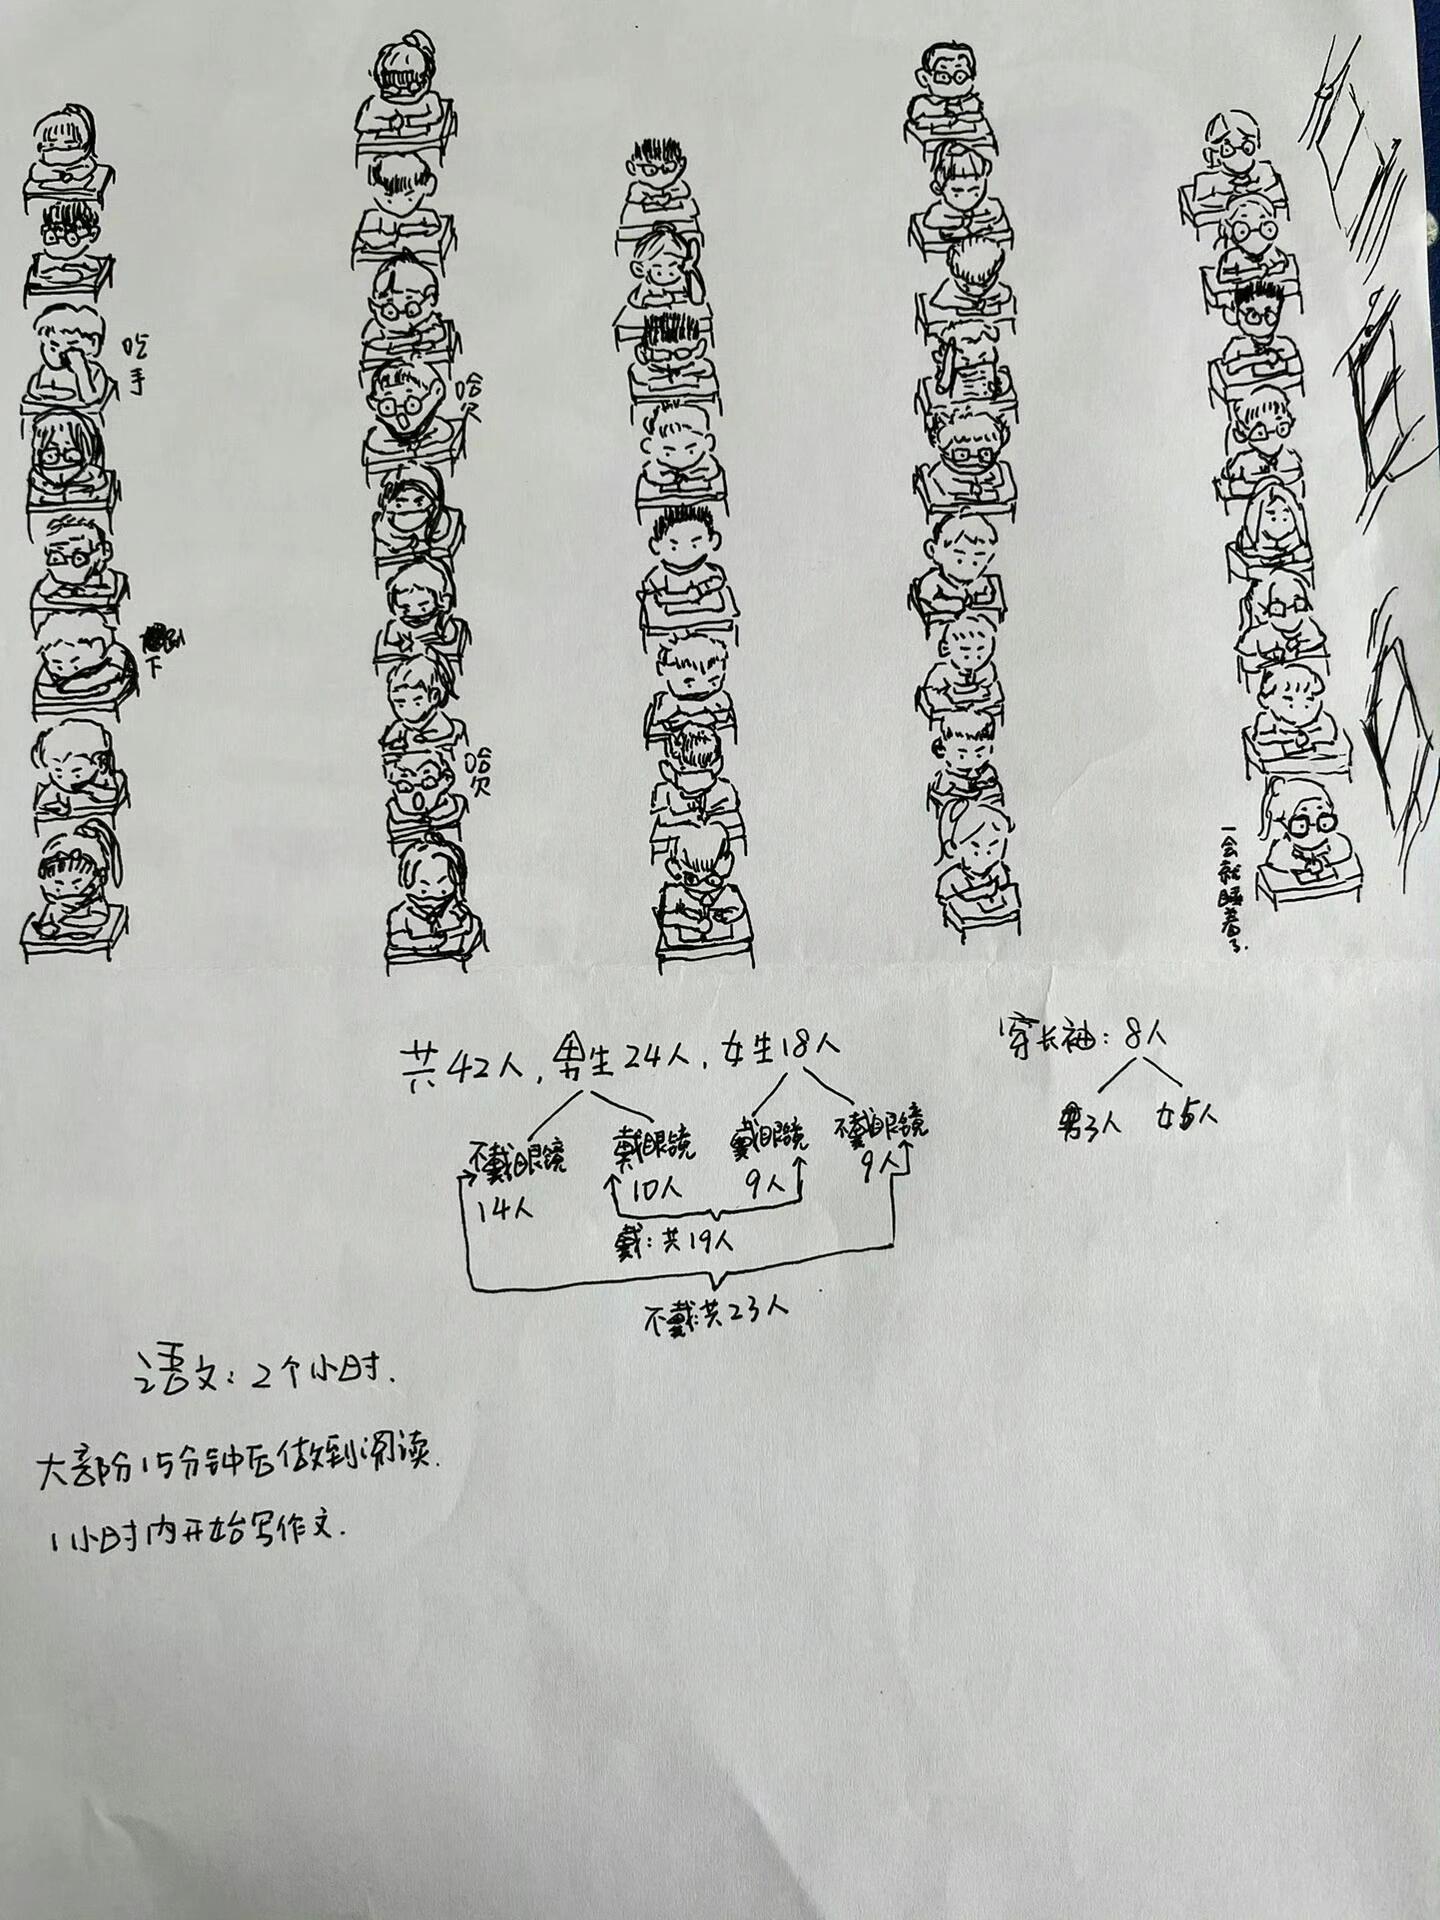 吃手
哈欠
下
哈欠
一会就睡着了.
共42人,男生24人,女生18人
穿长袖:8人
男3人 女5人
不戴眼镜 戴眼镜 戴眼镜 不戴眼镜
14人 10人 9人 9人
戴:共19人
不戴:共23人
语文:2个小时.
大部分15分钟后做到阅读.
1小时内开始写作文.